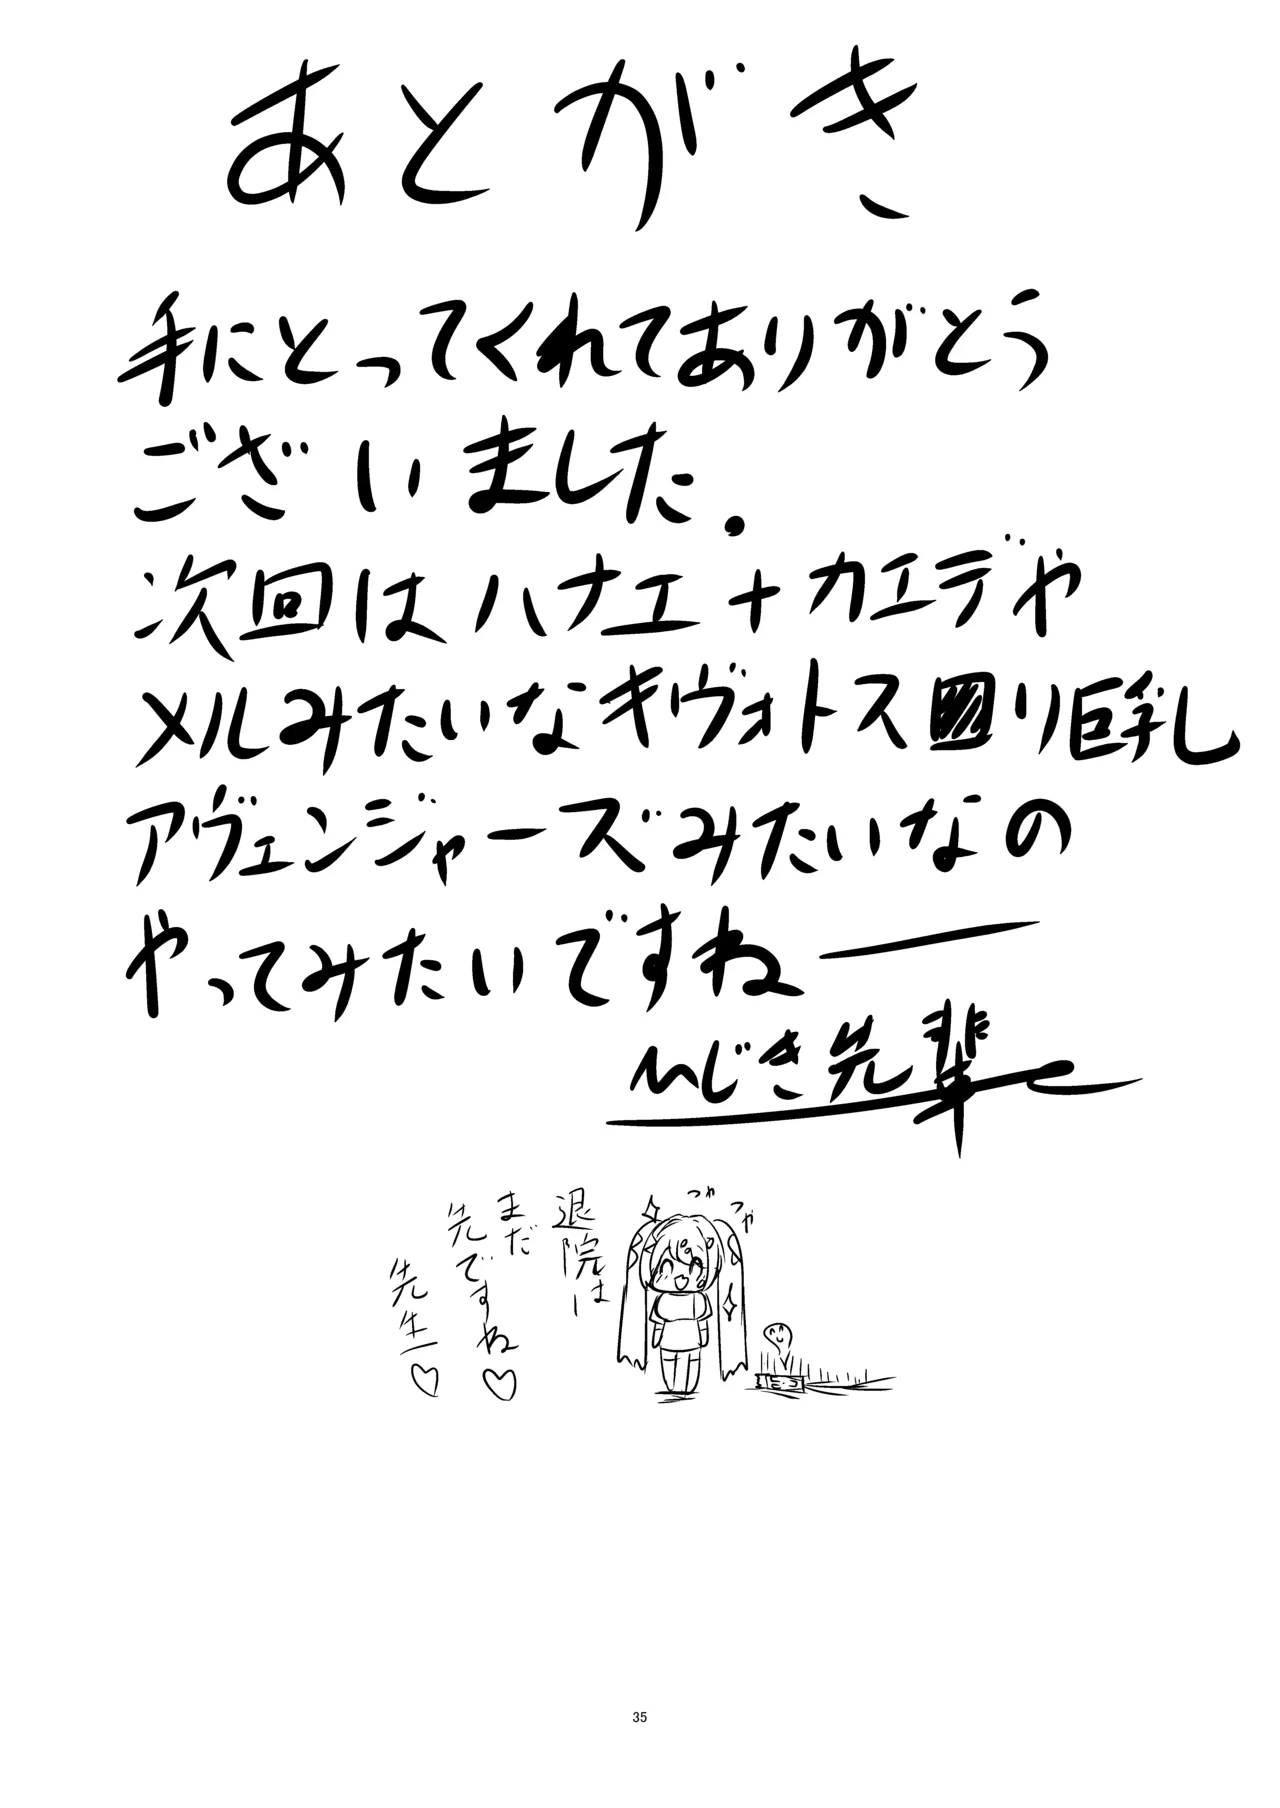 あとがき
手にとってくれてありがとう
ございました.
次回はハナエ+カエデや
メルみたいなキヴォトス回り巨乳
アヴェンジャーズみたいなの
やってみたいですねー
ひじき先輩
つや
つや
退院は
まだ
先ですね♡
先生♡
35